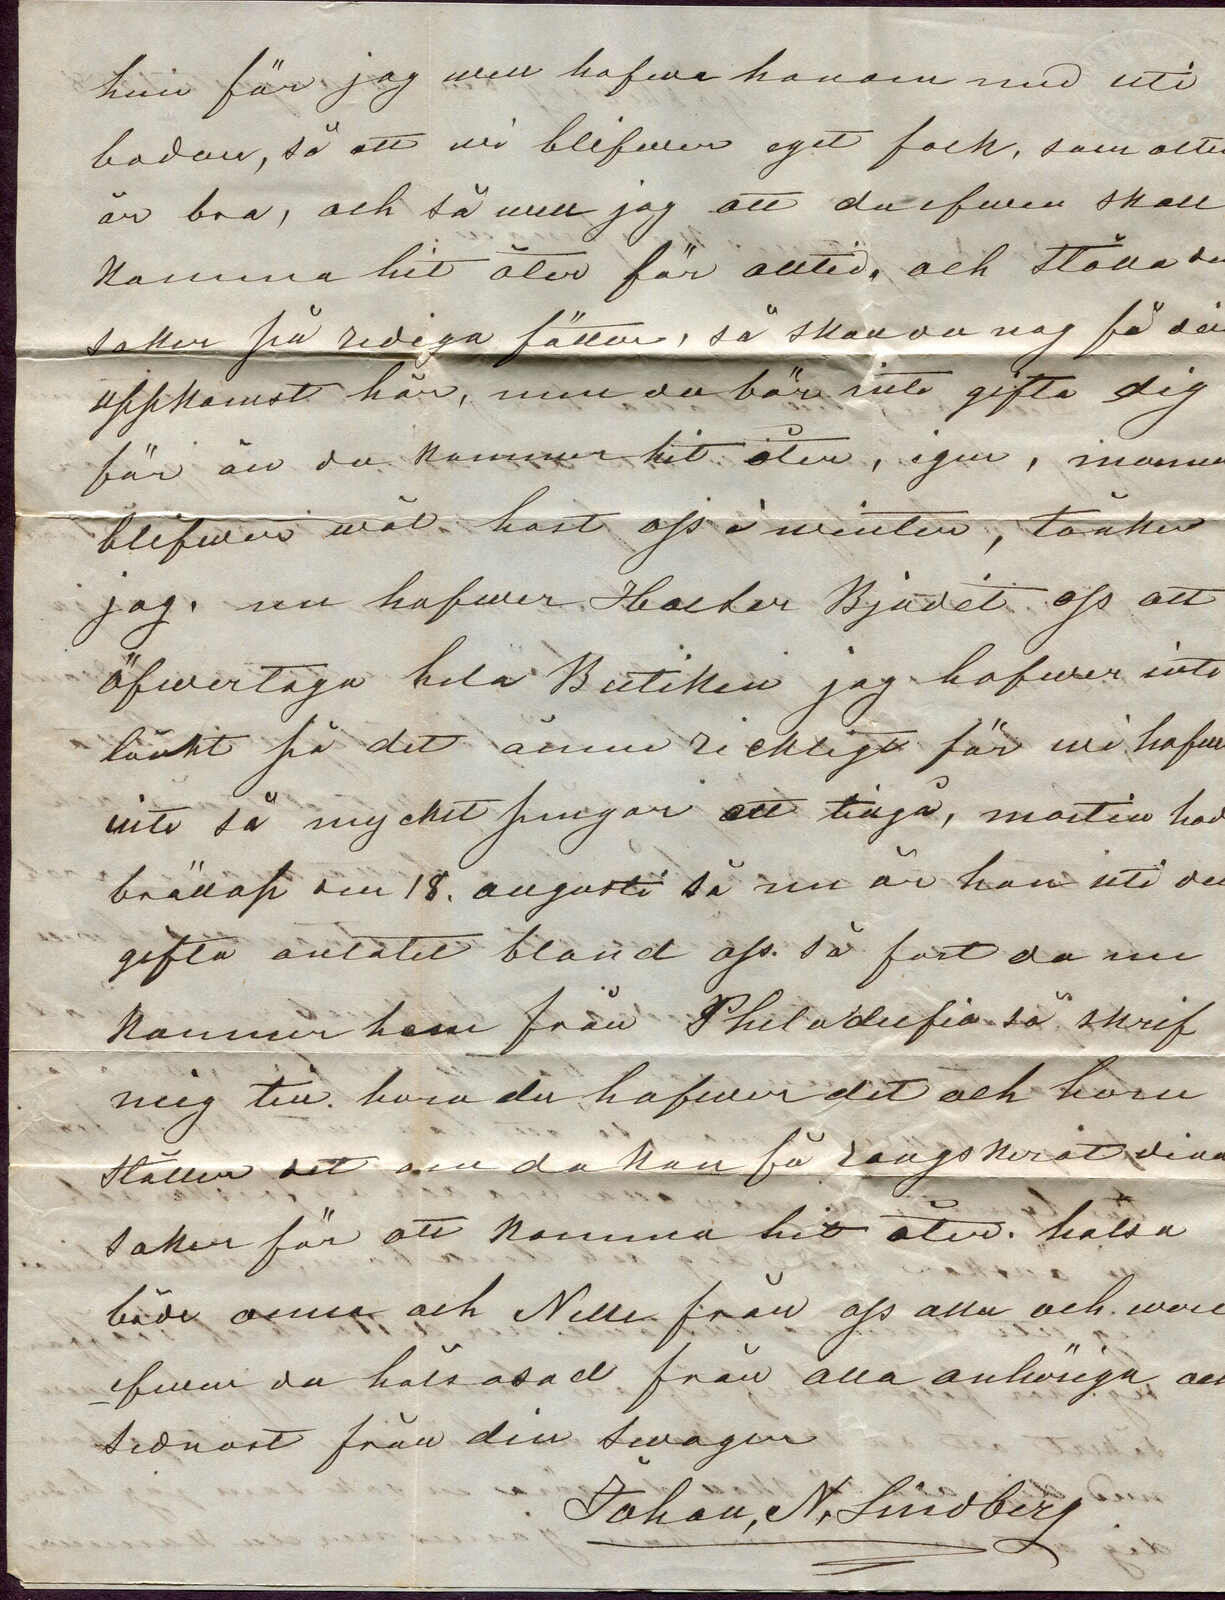 hm för jag will hafwa honom med uti
boden, så att wi blifwer eget folk, som altid
är bra, och så will jag att du efwen skall
komma hit åter för alltid, och ställa de
saker på rediga fötter, så skall du nog få din
uppkomst här, men du bör inte gifta dig
för än du kommer hit åter, igen, mamma
blifwer wäl host oss i winter, tänker
jag. nu hafwer Holter Bjudet oss att
öfwertaga hela Butiken jag hafwer inte
tänkt på det ännu ricktigt för wi hafwer
inte så mycket pengar att tinga, martin had
bröllop den 18. augusti så nu är han uti de
gifta antalet bland oss. så fort du nu
kommer hem från Philadelfia så skrif
mig till. huru du hafwer det och huru
ställer det om du kan få rangskerat dina
saker för att komma hit åter. hälsa
både anna och Nelle från oss alla och ware
efwen du hälsosad från alla anhöriga och
sednast från din swåger
Johan, N. Lindberg